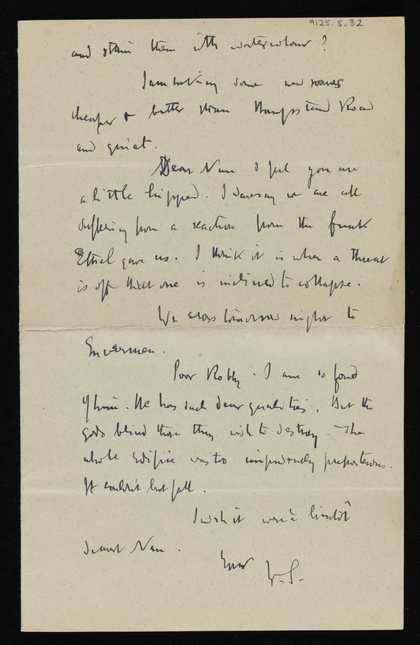 9125.5.32
and stain them with watercolour?
I am taking some new rooms
cheaper & better down Hampstead Road
and quiet.
Dear Nan I feel you are
a little hipped. I daresay we are all
suffering from a reaction from the funk
Ethel gave us. I think it is when a threat
is off that one is inclined to collapse.
We cross tomorrow night to
Envermeu.
Poor Robby. I am so fond
of him. He has such dear qualities. But the
gods blind those they wish to destroy. The
whole edifice was too preposterous.
It couldn't but fall.
I wish it wasn't
dearest Nan.
Your W.S.